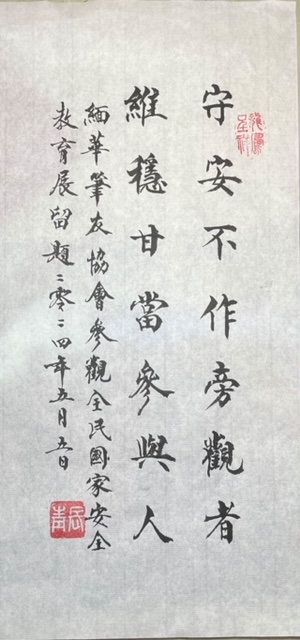 守安不作旁觀者
維穩甘當參與人
緬華筆友協會參觀全民國家安全
教育展留題二零二四年五月五日